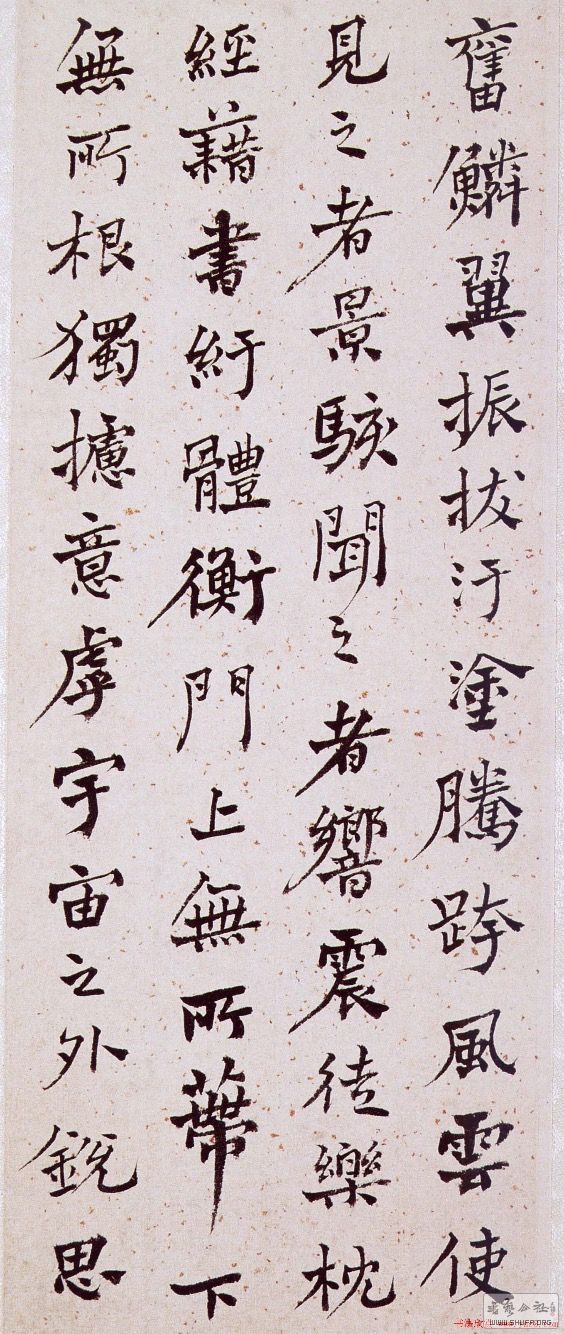 奮鱗翼振拔汙塗騰跨風雲使
見之者景駭聞之者響震徒樂枕
經藉書紆體衡門上無所蔕下
無所根獨攄意虖宇宙之外銳思
書藝公社